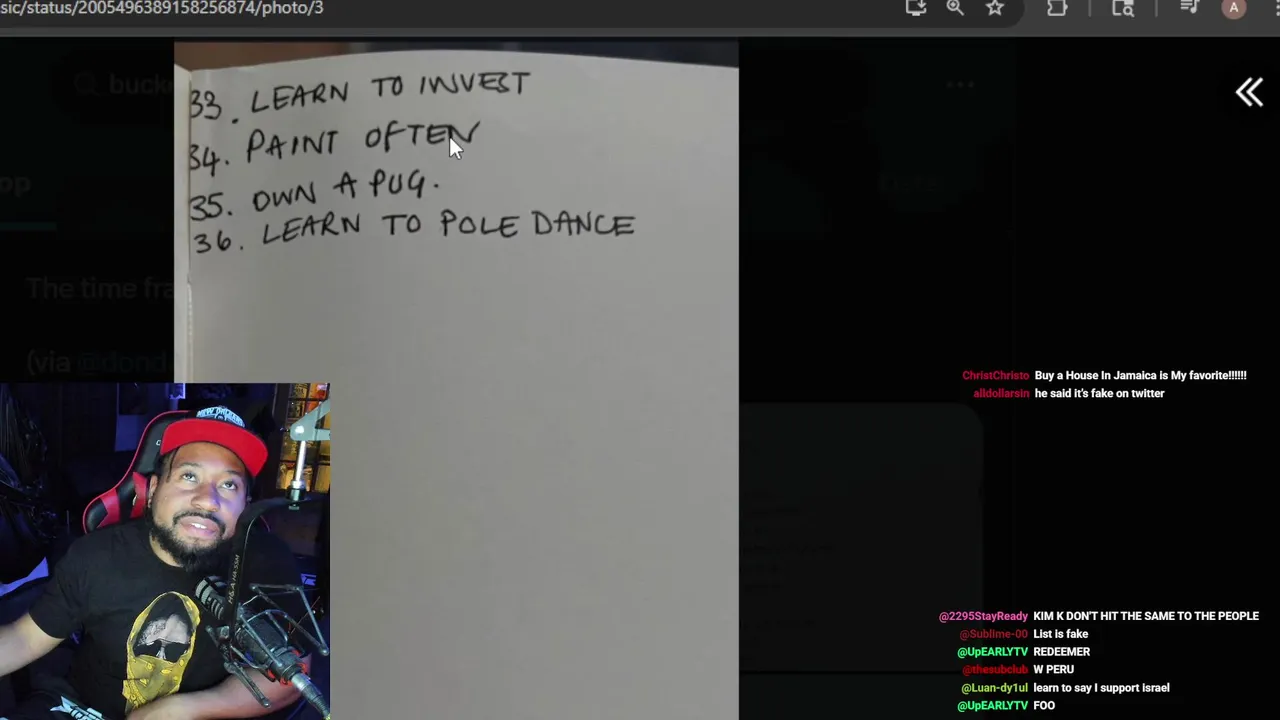 sic/status/2005496389158256874/photo/3
A
buck
33. LEARN TO INVEST
34. PAINT OFTEN
35. OWN A PUG.
36. LEARN TO POLE DANCE
op
The time fra
(via @dond
ChristChristo Buy a House In Jamaica is My favorite!!!!!!
alldollarsin he said it's fake on twitter
@2295StayReady KIM K DON'T HIT THE SAME TO THE PEOPLE
@Sublime-00 List is fake
@UpEARLYTV REDEEMER
@thesubclub W PERU
@Luan-dy1ul learn to say I support israel
@UpEARLYTV FOO